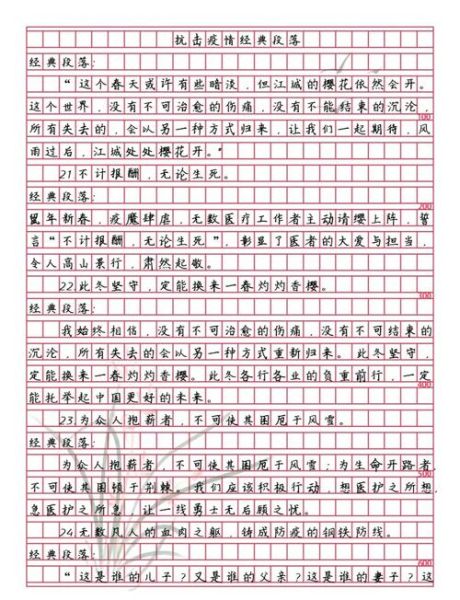 抗击疫情经典段落
经典段落：
“这个春天或许有些暗淡，但江城的樱花依然会开。
这个世界，没有不可治愈的伤痛，没有不能结束的沉沦，
100
所有失去的，会以另一种方式归来，让我们一起期待，风
雨过后，江城处处樱花开。”
21不计报酬，无论生死。
经典段落：
200
鼠年新春，疫魔肆虐，无数医疗工作者主动请缨上阵，誓
言“不计报酬，无论生死”，彰显了医者的大爱与担当，
令人高山景行，肃然起敬。
22.此冬坚守，定能换来一春灼灼香樱。
300
经典段落：
我始终相信，没有不可治愈的伤痛，没有不可结束的
沉沦，所有失去的会以另一种方式重新归来。此冬坚守，
定能换来一春灼灼香樱。此冬各行各业的负重前行，一定
400
能托举起中国更好的未来。
23.为众人抱薪者，不可使其困厄于风雪。
经典段落：
为众人抱薪者，不可使其困厄于风雪；为生命开路者，
不可使其困顿于荆棘。我们应该积极行动，想医护之所想，
500
急医护之所急，让一线勇士无后顾之忧。
24.无数凡人的血肉之躯，铸成防疫的钢铁防线。
经典段落：
600
“这是谁的儿子？又是谁的父亲？这是谁的妻子？这